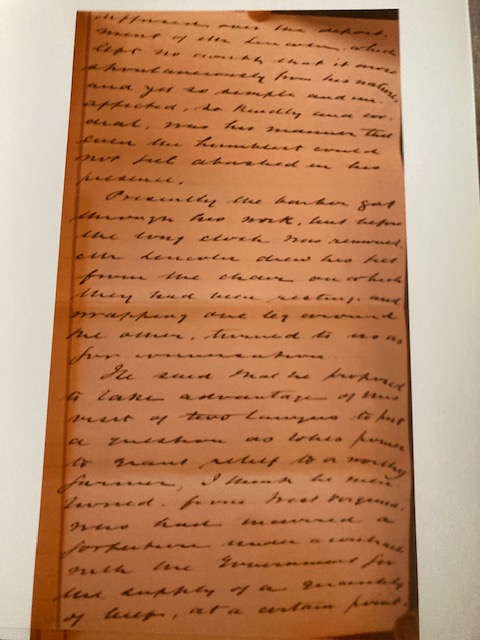 diffused over the deport-
ment of Mr Lincoln, which
left no doubt that it arose
spontaneously from his nature,
and yet so simple and un-
affected, so kindly and cor-
dial, was his manner that
even the humblest could
not feel abashed in his
presence.
Presently the barber got
through his work, but before
the long cloth was removed
Mr Lincoln drew his feet
from the chair on which
they had been resting, and
wrapping one leg around
the other, turned to us as
for conversation
He said that he proposed
to take advantage of this
visit of two lawyers to put
a question as to his power
to grant relief to a worthy
farmer, I think he men-
tioned from West Virginia,
who had incurred a
forfeiture under a contract
with the Government for
the supply of a quantity
of beef, at a certain point,